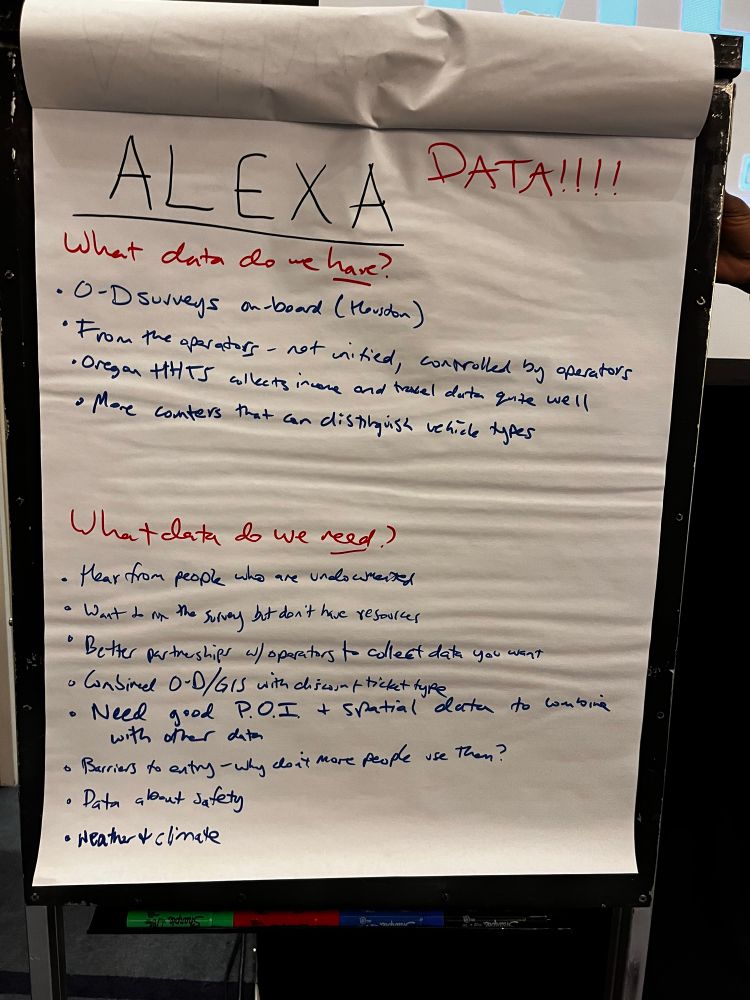 ALEXA DATA!!!!
What data do we have?
• O-D surveys on-board (Houston)
• From the operators - not unified, controlled by operators
• Oregon HHTS collects income and travel data quite well
• More counters that can distinguish vehicle types
What data do we need?
• Hear from people who are undocumented
• Want to run the survey but don't have resources
• Better partnerships w/ operators to collect data you want
• Combined O-D/GIS with discount ticket type
• Need good P.O.I. + spatial data to combine
with other data
• Barriers to entry - why don't more people use them?
• Data about safety
• Weather & climate
Sharpie
Sharpie
Sharpie